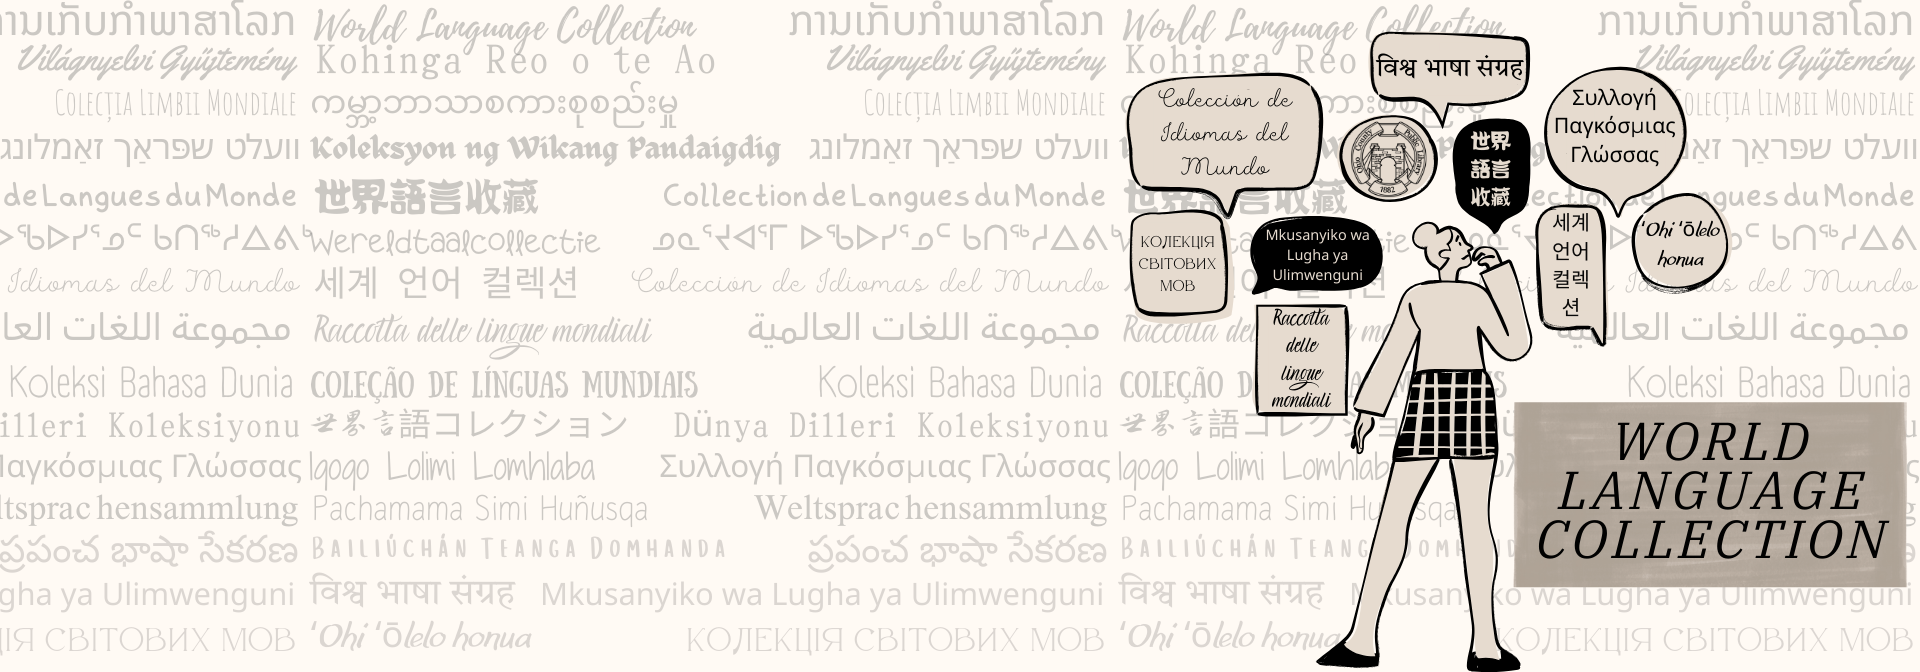 ການເກັບກຳພາສາໂລກ World Language Collection ການເກັບກຳພາສາໂລກ World Language Collection ການເກັບກຳພາສາໂລກ
Világnyelvi Gyűjtemény Kohinga Reo o te Ao Világnyelvi Gyűjtemény Kohinga Reo Világnyelvi Gyűjtemény
Colecția Limbii Mondiale ကမ္ဘာ့ဘာသာစကားစုစည်းမှု Colecția Limbii Mondiale
וועלט שפּראַך זאַמלונג Koleksyon ng Wikang Pandaigdig וועלט שפּראַך זאַמלונג
de Langues du Monde 世界語言收藏 Collection de Langues du Monde
Wereldtaalcollectie
Idiomas del Mundo 세계 언어 컬렉션 Colección de Idiomas del Mundo
مجموعة اللغات العالمية Raccolta delle lingue mondiali مجموعة اللغات العالمية
Koleksi Bahasa Dunia COLEÇÃO DE LÍNGUAS MUNDIAIS Koleksi Bahasa Dunia COLEÇÃO Koleksi Bahasa Dunia
Koleksiyonu 世界言語コレクション Dünya Dilleri Koleksiyonu
Γλώσσας Iqoqo Lolimi Lomhlaba Συλλογή Παγκόσμιας Γλώσσας Iqoqo Lolimi Lomhlaba
Pachamama Simi Huñusqa Weltsprachensammlung Pachamama Simi Huñusqa
ప్రపంచ భాషా సేకరణ Bailiúchán Teanga Domhanda ప్రపంచ భాషా సేకరణ Bailiúchán
ya Ulimwenguni विश्व भाषा संग्रह Mkusanyiko wa Lugha ya Ulimwenguni विश्व भाषा संग्रह Mkusanyiko wa Lugha ya Ulimwenguni
СВІТОВИХ МОВ ʻOhi ʻōlelo honua КОЛЕКЦІЯ СВІТОВИХ МОВ ʻOhi ʻōlelo honua КОЛЕКЦІЯ СВІТОВИХ МОВ
विश्व भाषा संग्रह
Colección de
Idiomas del
Mundo
Ohio County Public Library
1882
世界
語言
收藏
Συλλογή
Παγκόσμιας
Γλώσσας
КОЛЕКЦІЯ
СВІТОВИХ
МОВ
Mkusanyiko wa
Lugha ya
Ulimwenguni
세계
언어
컬렉
션
ʻOhi ʻōlelo
honua
Raccolta
delle
lingue
mondiali
WORLD
LANGUAGE
COLLECTION